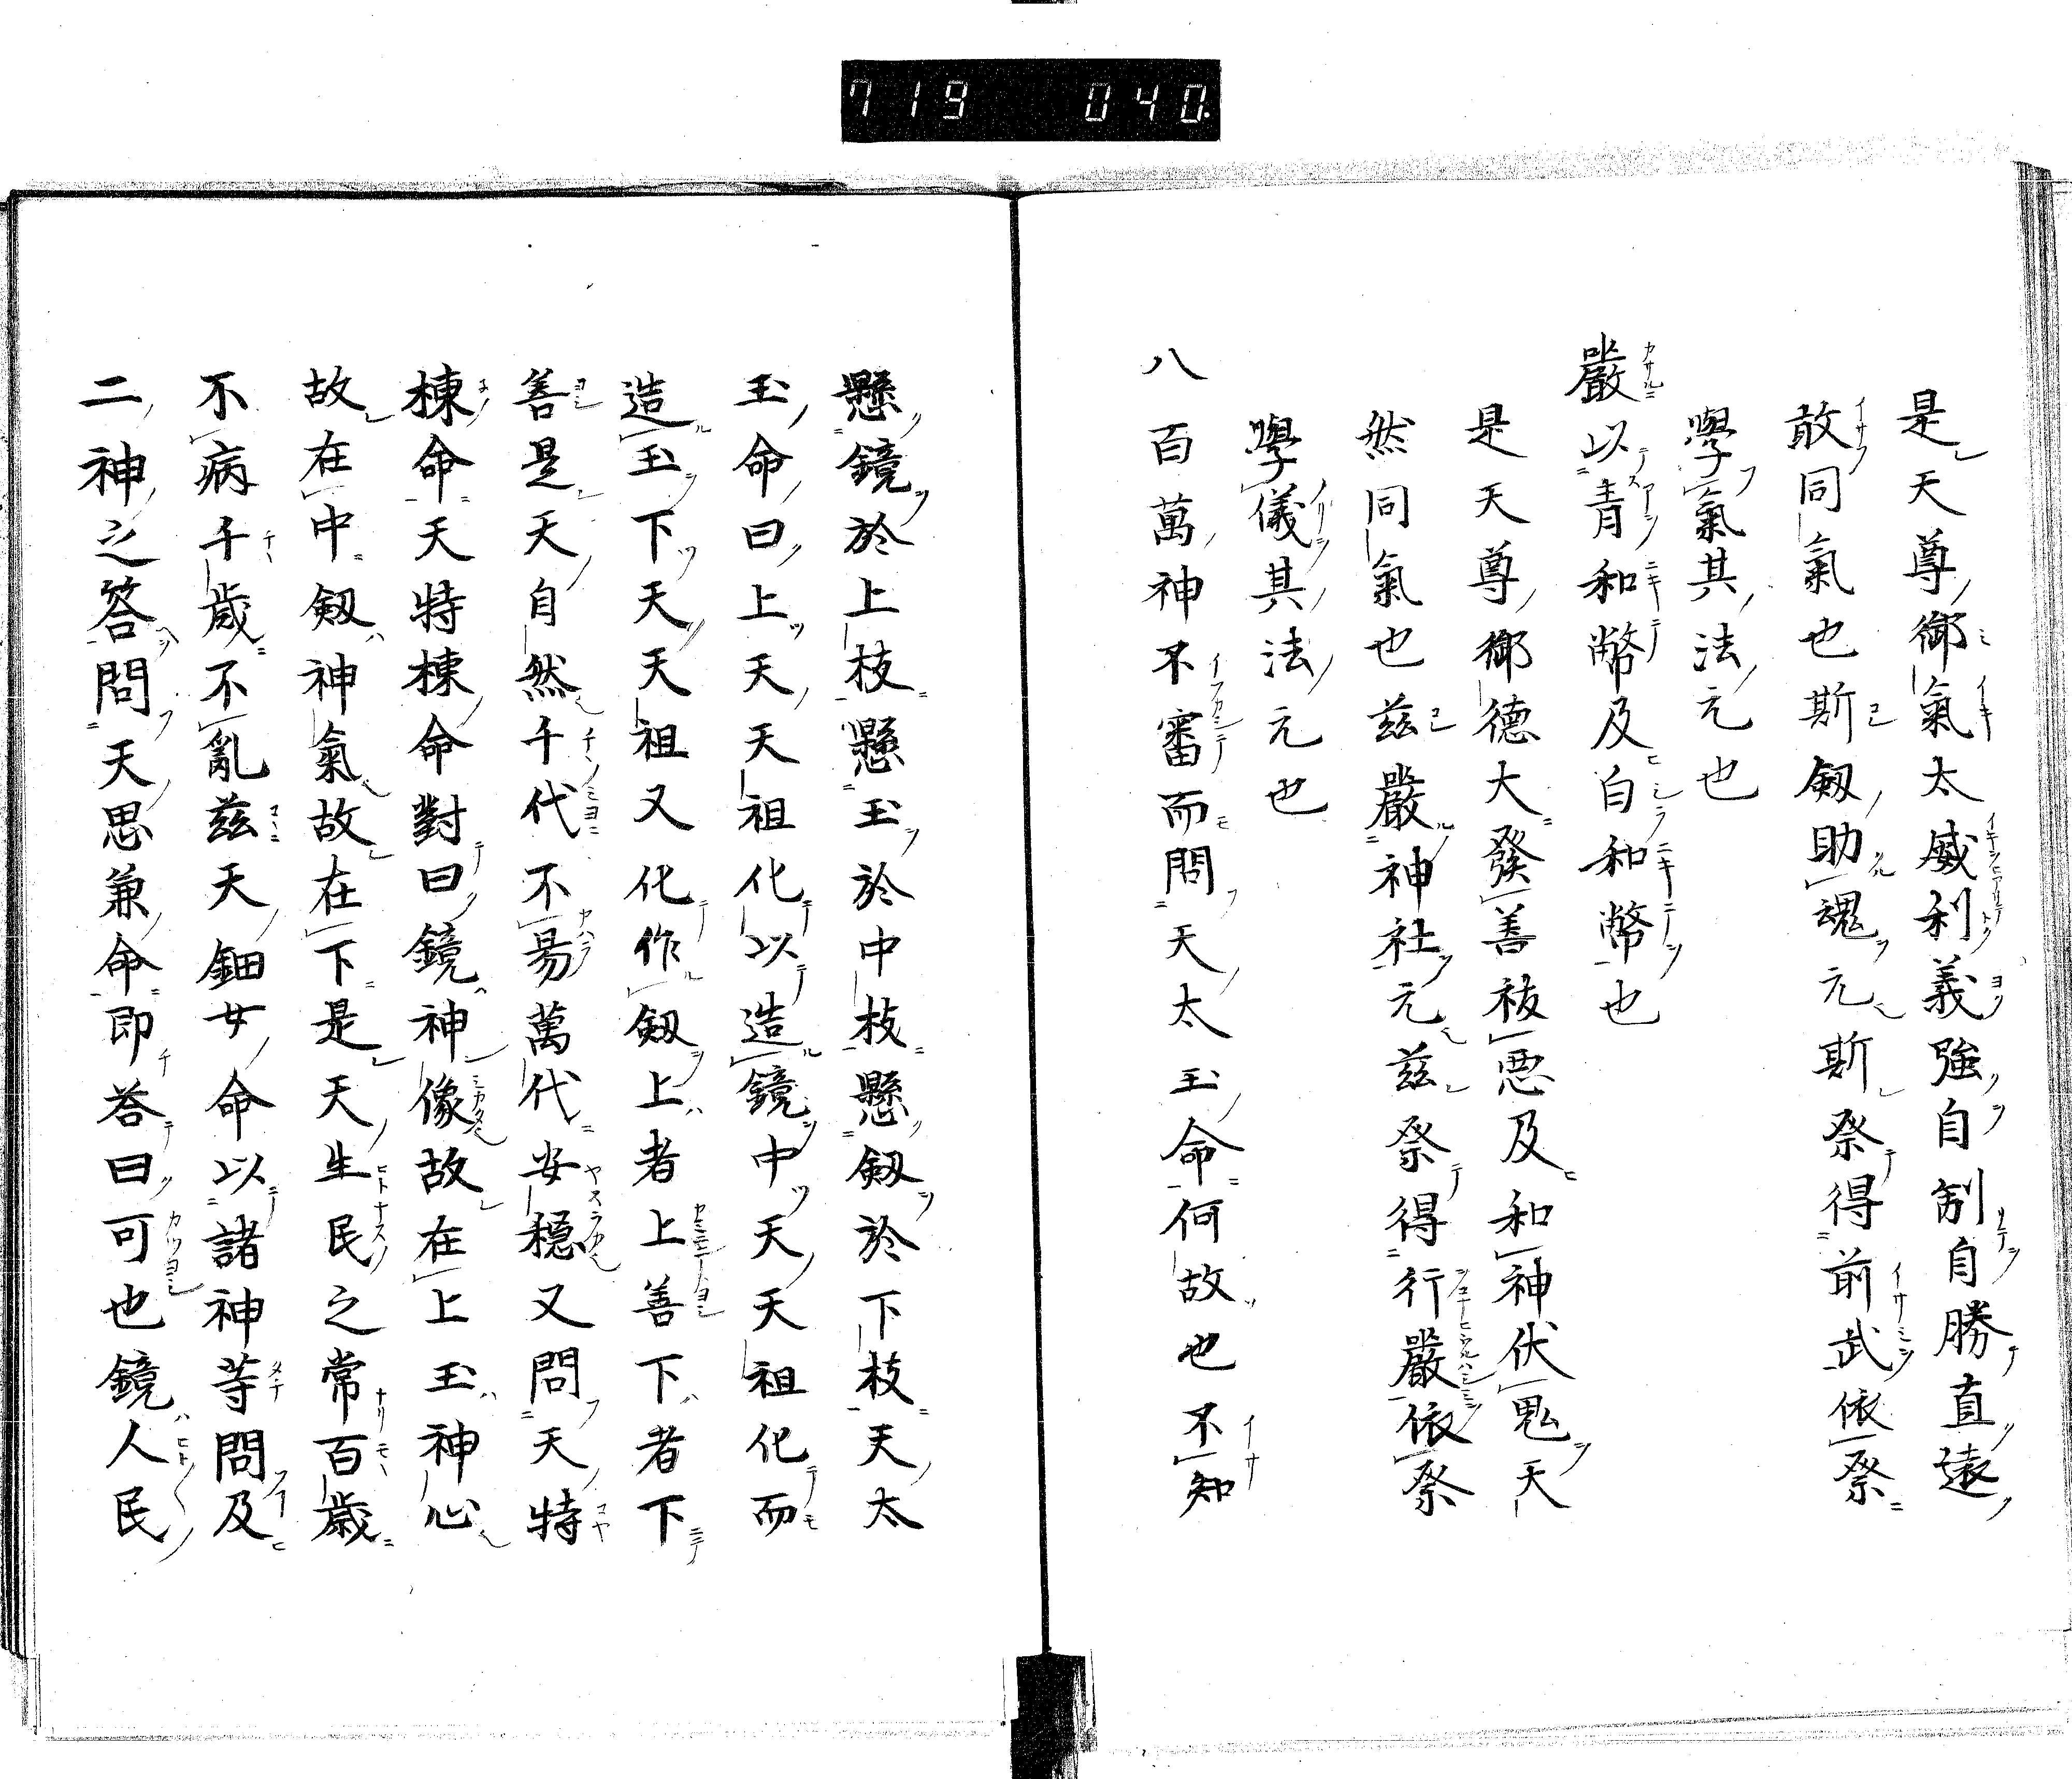 719 040.
是天尊御氣太威利義強自制自勝直遠
敢同氣也斯劔助魂元斯祭得前武依祭
學氣其法元也
嚴以青和幣及白和幣也
是天尊御德大發善祓悪及和神伏鬼天
然同氣也茲嚴神社元茲祭得行嚴依祭
學儀其法元也
八百萬神不審而問天太玉命何故也不知
懸鏡於上枝懸玉於中枝懸劔於下枝天太
玉命曰上天天祖化以造鏡中天天祖化而
造玉下天天祖又化作劔上者上善下者下
善是天自然千代不昜萬代安穩又問天特
棟命天特棟命對曰鏡神像故在上玉神心
故在中劔神氣故在下是天生民之常百歳
不病千歳不亂茲天鈿女命以諸神等問及
二神之答問天思兼命即荅曰可也鏡人民